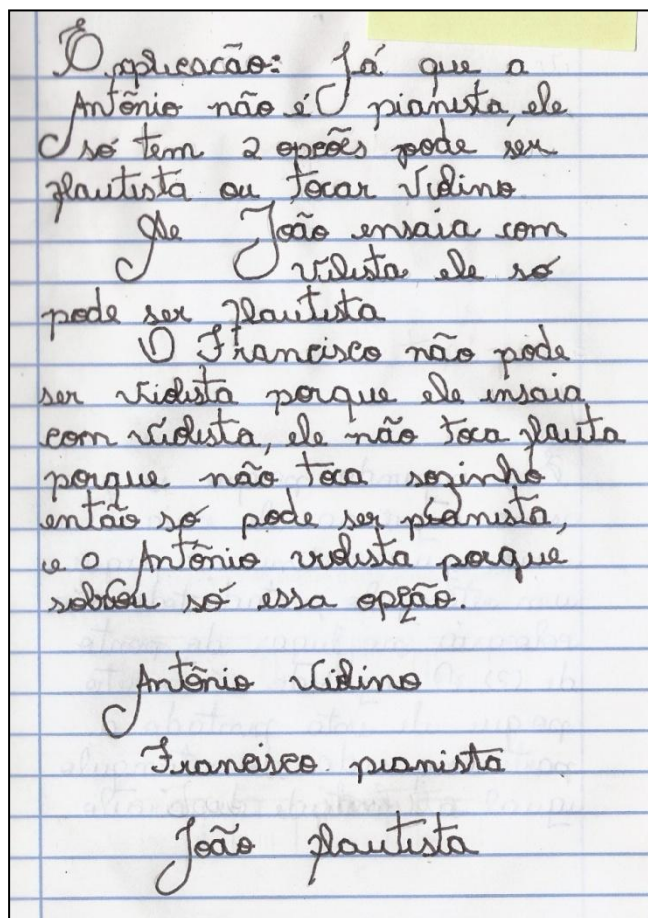 Explicacão: Já que a
Antônio não é pianista, ele
só tem 2 opções pode ser
flautista ou tocar violino
Se João ensaia com
violista ele só
pode ser flautista
O Francisco não pode
ser violista porque ele insaia
com violista, ele não toca flauta
porque não toca sozinho
então só pode ser pianista,
e o Antônio violista porque
sobrou só essa opção.
Antônio violino
Francisco pianista
João flautista